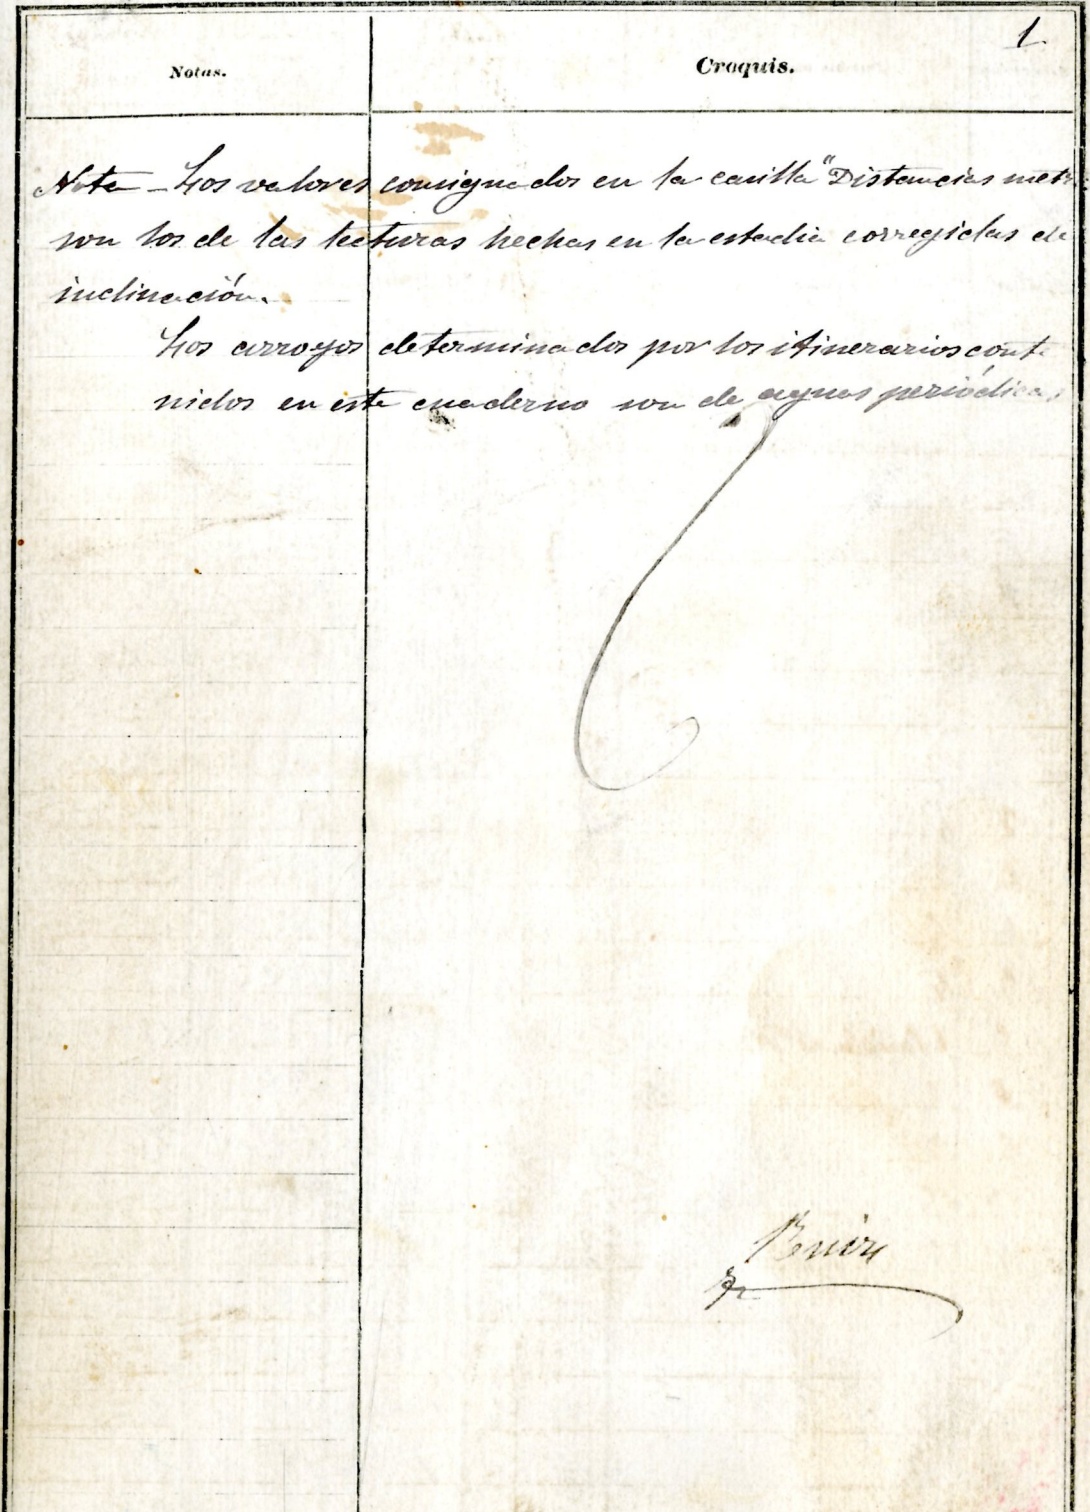 1
Notas.
Croquis.
Nota - Los valores consignados en la casilla "Distancias met
son los de las lecturas hechas en la estadia corregidas de
inclinación.
Los arroyos determinados por los itinerarios conte
nidos en este cuaderno son de aguas periódicas